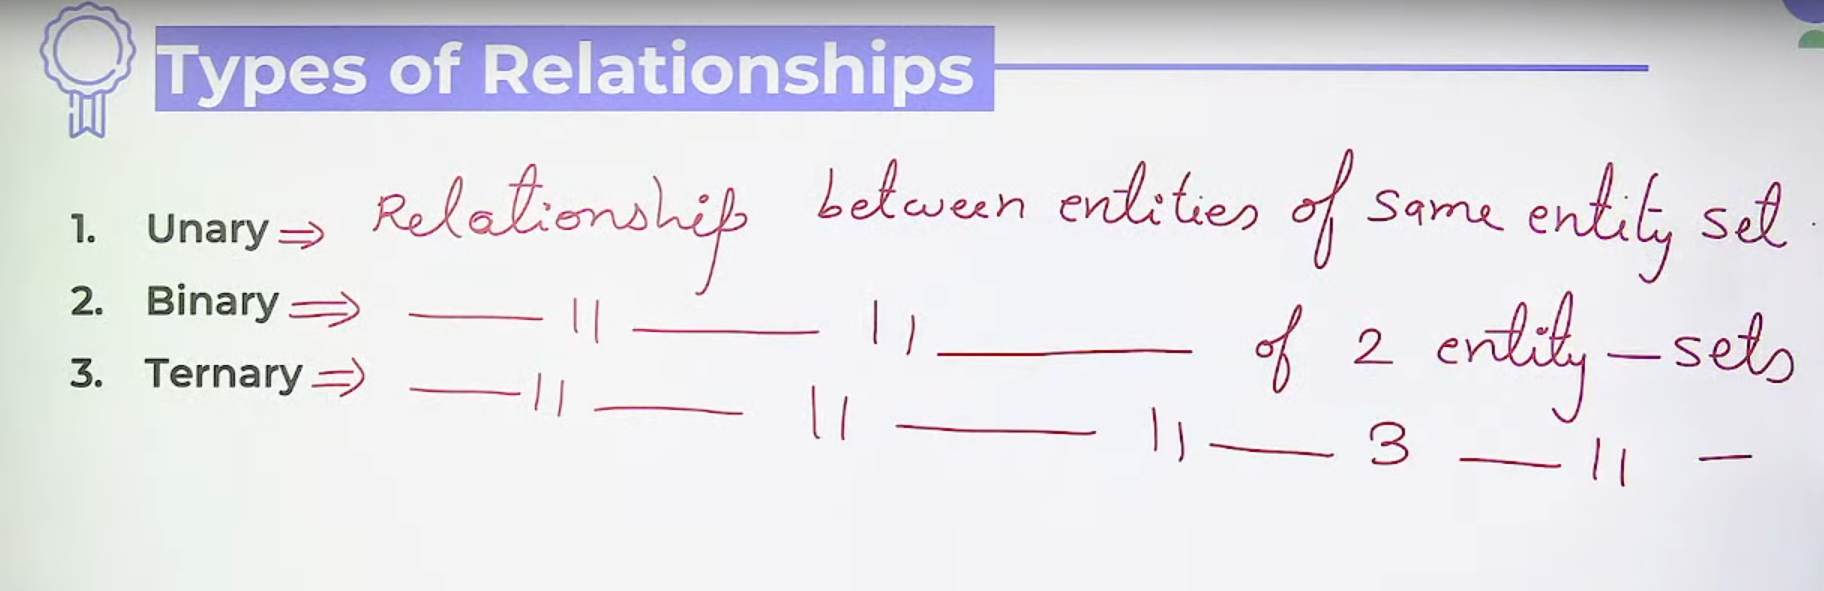 Types of Relationships
1. Unary ⇒ Relationship between entities of same entity set.
2. Binary ⇒ —— 11 —— 11 —— of 2 entity-sets
3. Ternary ⇒ —— 11 —— 11 —— 11 —— 3 —— 11 —